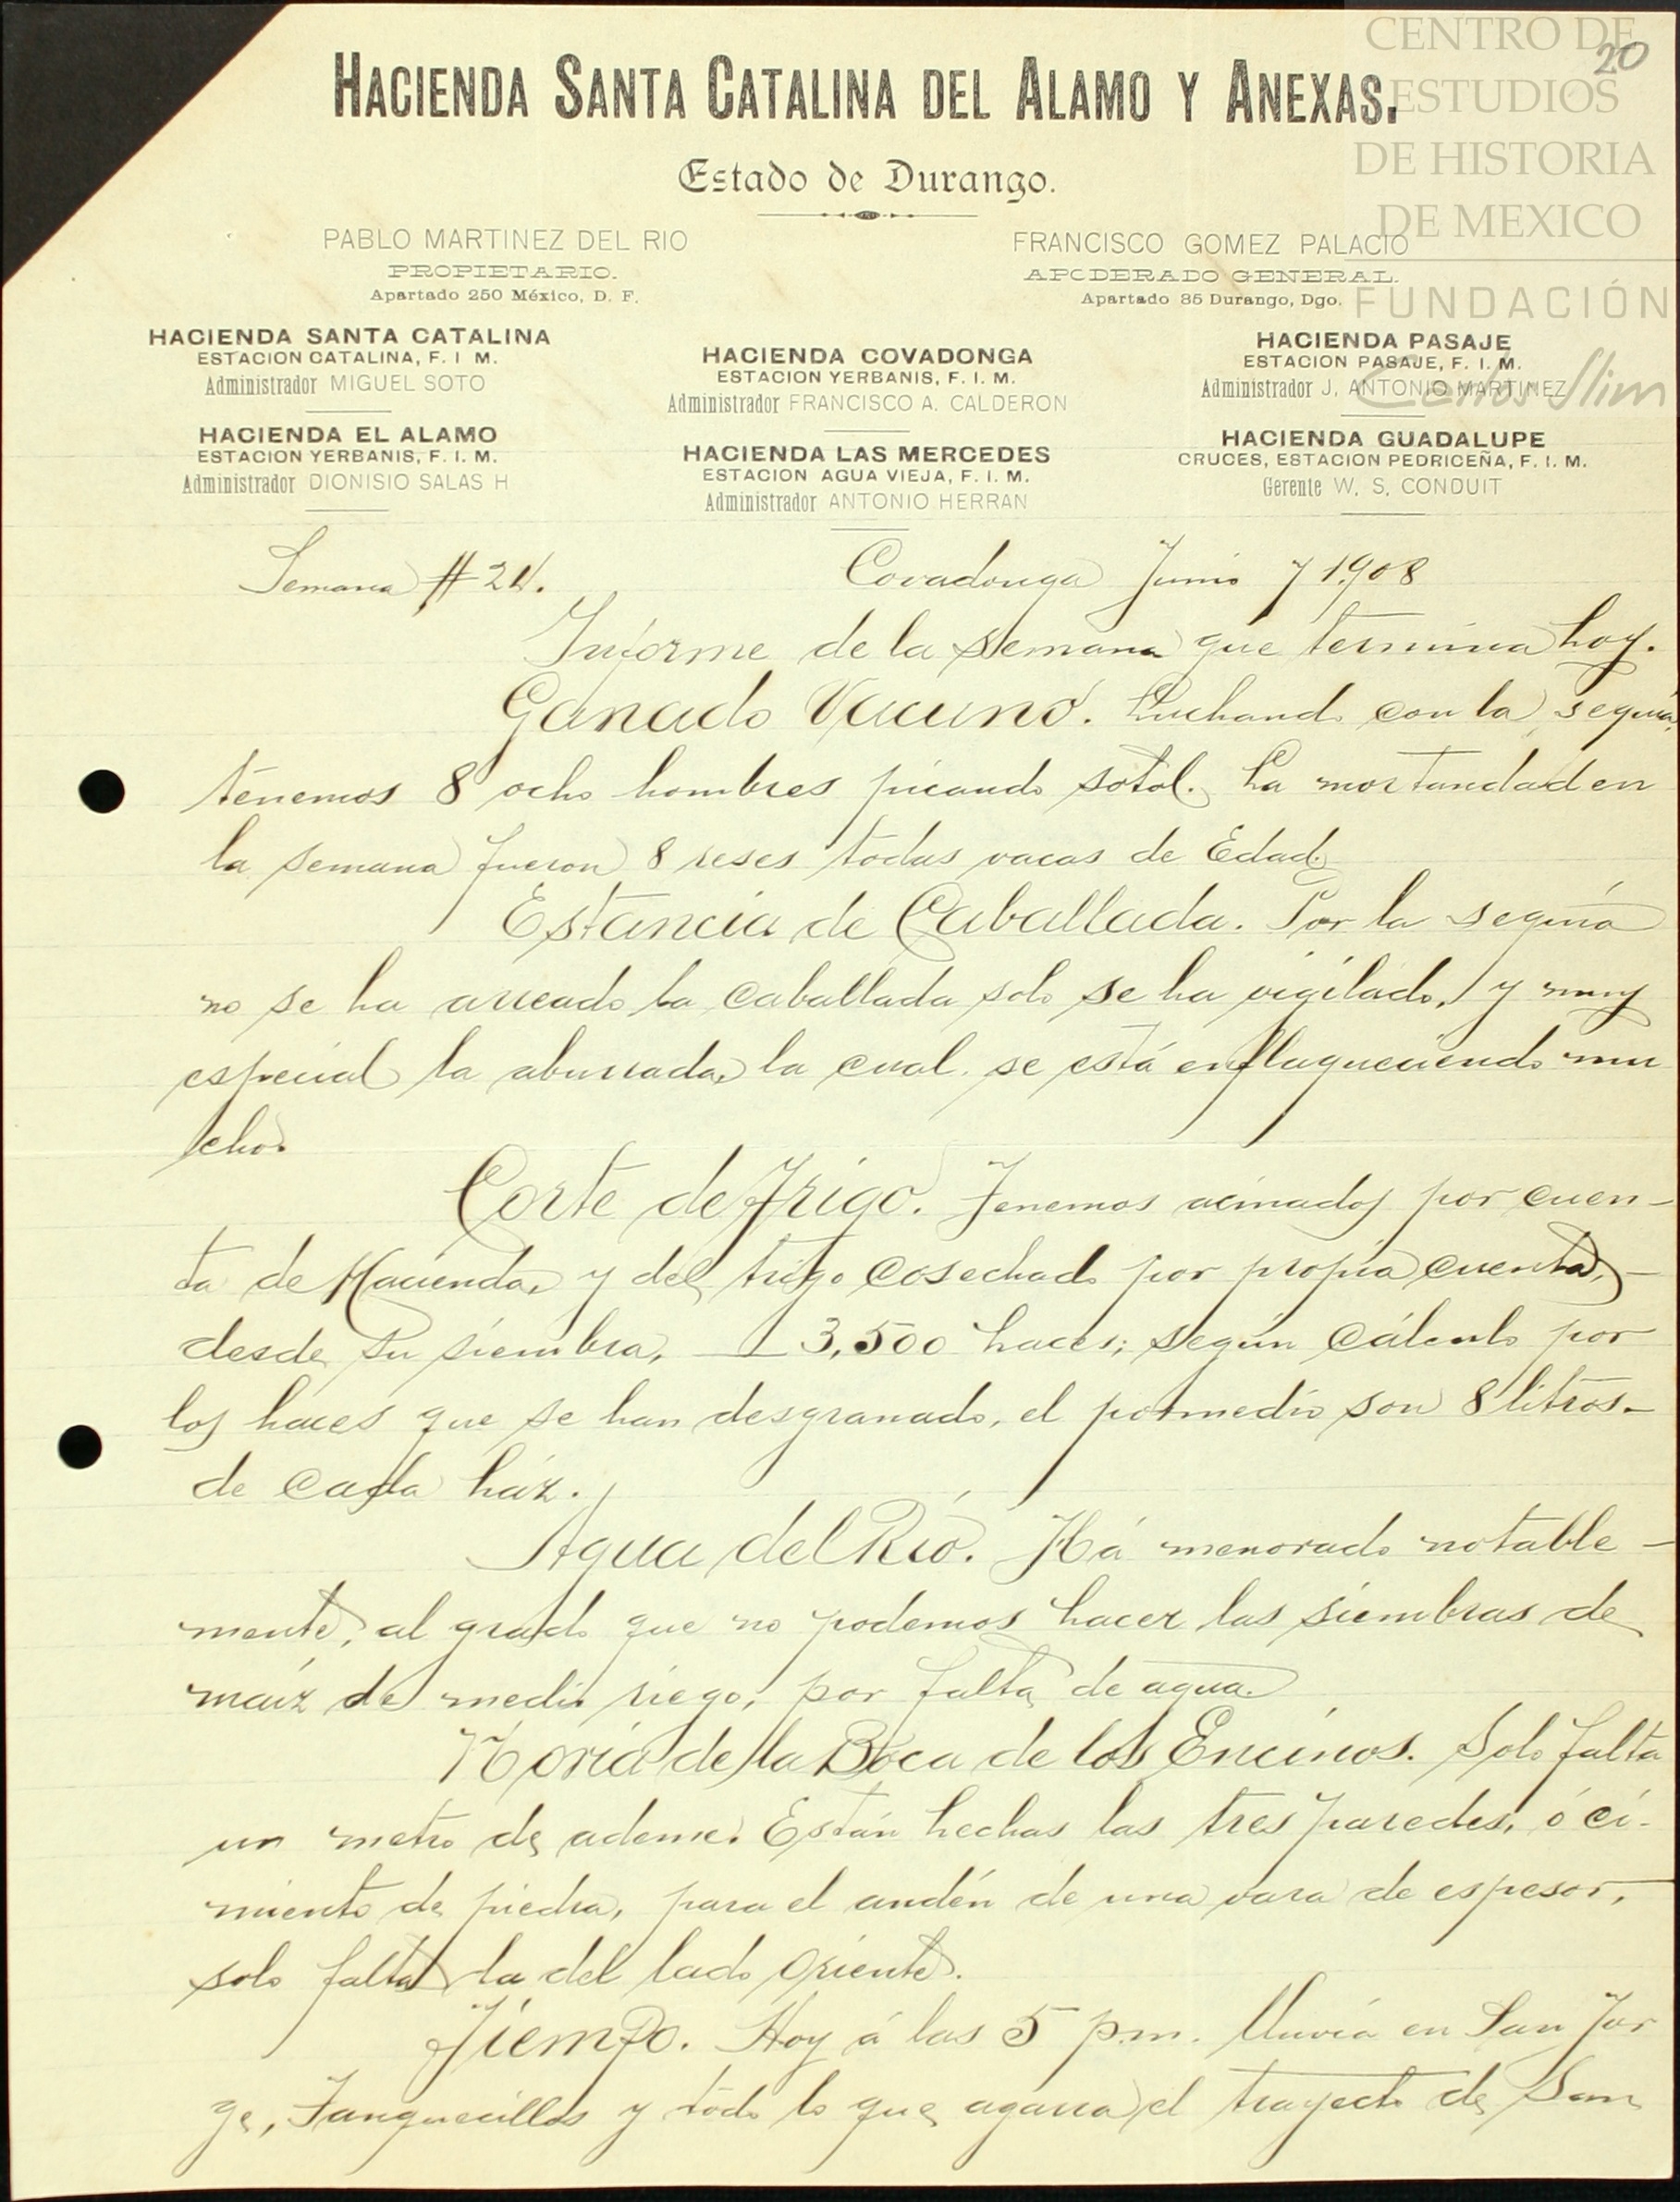 CENTRO DE
ESTUDIOS
DE HISTORIA
DE MEXICO
FUNDACIÓN
Carlos Slim
20
HACIENDA SANTA CATALINA DEL ALAMO Y ANEXAS.
Estado de Durango.
PABLO MARTINEZ DEL RIO
PROPIETARIO.
Apartado 250 México, D. F.
FRANCISCO GOMEZ PALACIO
APODERADO GENERAL.
Apartado 85 Durango, Dgo.
HACIENDA SANTA CATALINA
ESTACION CATALINA, F. I M.
Administrador MIGUEL SOTO
HACIENDA EL ALAMO
ESTACION YERBANIS, F. I. M.
Administrador DIONISIO SALAS H
HACIENDA COVADONGA
ESTACION YERBANIS, F. I. M.
Administrador FRANCISCO A. CALDERON
HACIENDA LAS MERCEDES
ESTACION AGUA VIEJA, F. I. M.
Administrador ANTONIO HERRAN
HACIENDA PASAJE
ESTACION PASAJE, F. I. M.
Administrador J. ANTONIO MARTINEZ
HACIENDA GUADALUPE
CRUCES, ESTACION PEDRICEÑA, F. I. M.
Gerente W. S. CONDUIT
Semana # 24. Covadonga Junio 7 1908
Informe de la semana que termina hoy.
Ganado Vacuno. Luchando con la sequia,
tenemos 8 ocho hombres picando sotol. La mortandad en
la semana fueron 8 reses todas vacas de Edad.
Estancia de Caballada. Por la sequia
no se ha arreado la caballada solo se ha vigilado, y muy
especial la aburrada, la cual se está enflaqueciendo mu
cho.
Corte de Trigo. Tenemos acinados por cuen-
ta de Hacienda, y del trigo cosechado por propia cuenta,-
desde su siembra, 3,500 haces; según cálculo por
los haces que se han desgranado, el potmedio son 8 litros-
de cada ház.
Agua del Rio. Há menorado notable-
mente, al grado que no podemos hacer las siembras de
maíz de medio riego, por falta de agua.
Noria de la Boca de los Encinos. Solo falta
un metro de ademe. Están hechas las tres paredes, ó ci-
miento de piedra, para el andén de una vara de espesor,
solo falta la del lado Oriente.
Tiempo. Hoy á las 5 p.m. lluvia en San Jor
ge, Tanquecillos y todo lo que agarra el trayecto de San